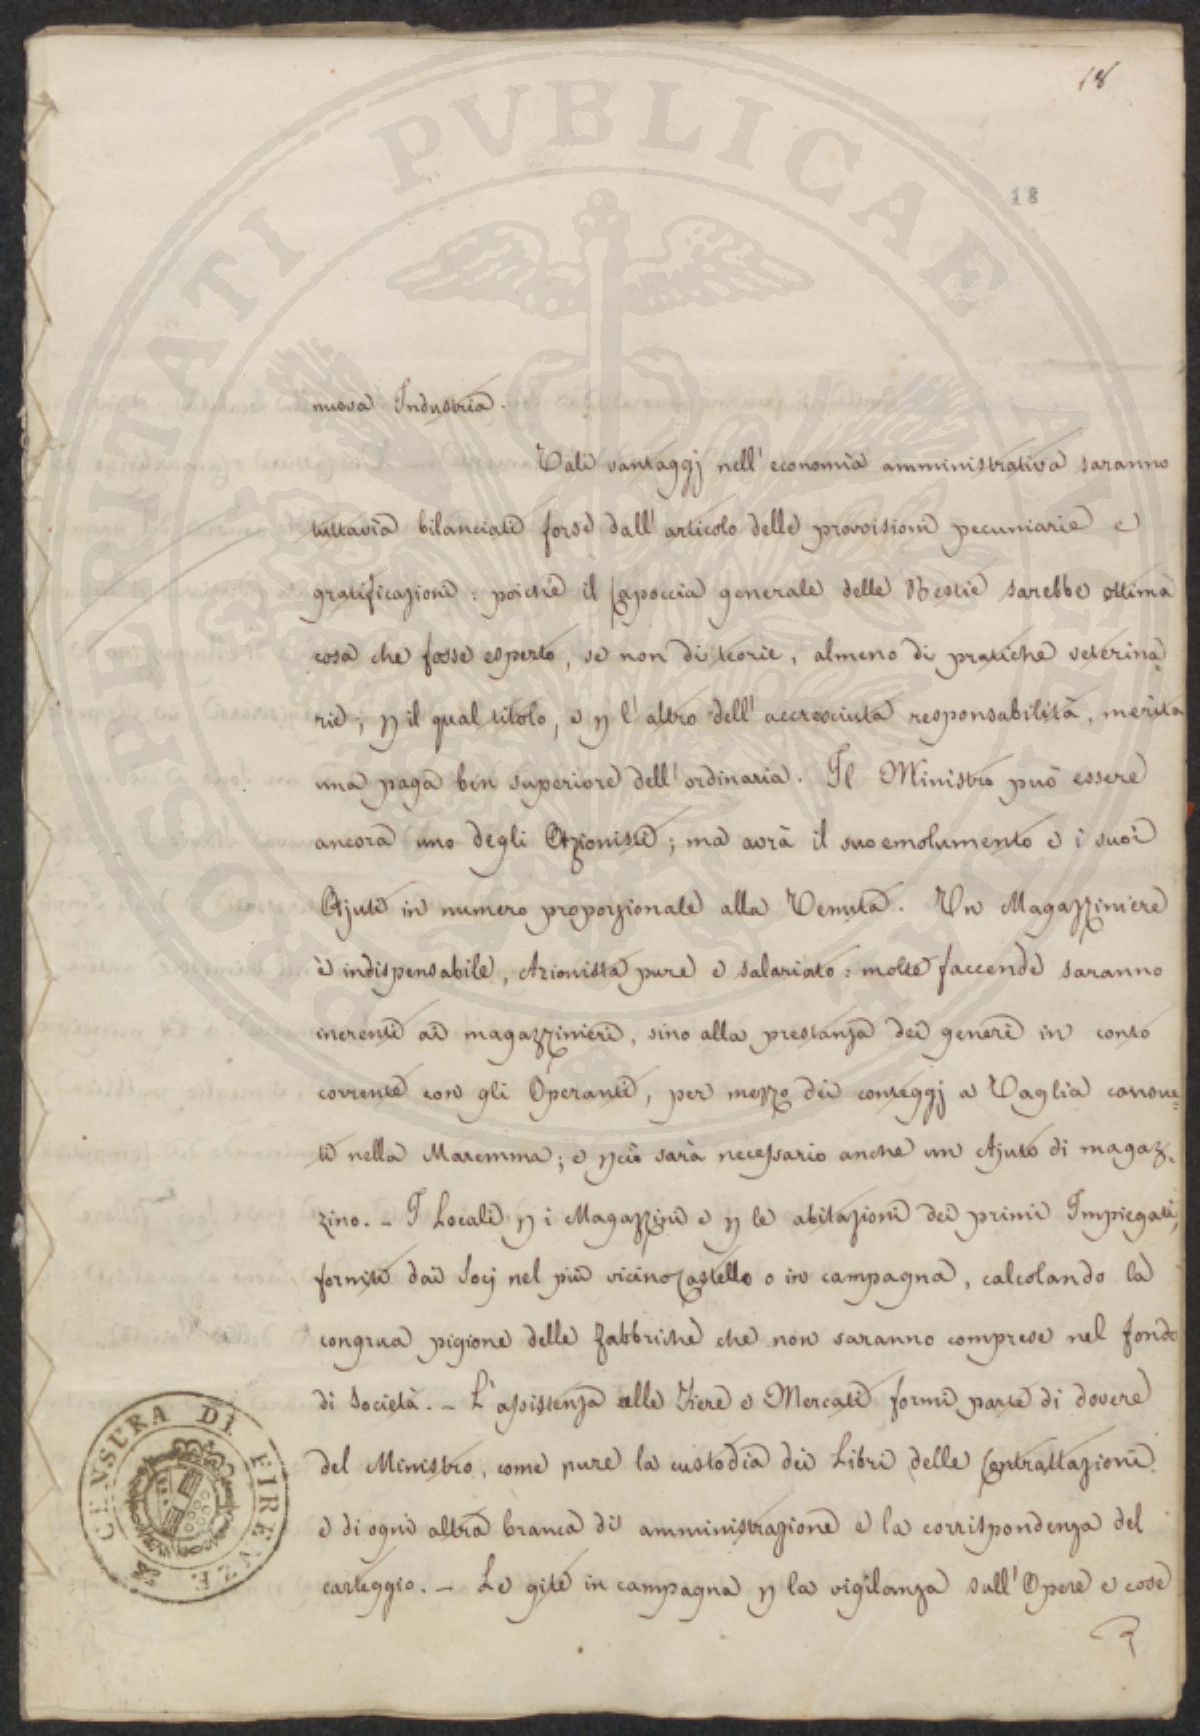 18
18
nuova Industria.
Tali vantaggj nell' economia amministrativa saranno
tuttavia bilanciati forse dall' articolo delle provvisioni pecuniarie e
gratificazioni: poichè il Capoccia generale delle Bestie sarebbe ottima
cosa che fosse esperto, se non di teorie, almeno di pratiche veterina=
rie; p il qual titolo, e p l' altro dell' accresciuta responsabilità, merita
una paga ben superiore dell' ordinaria. Il Ministro può essere
ancora uno degli Azionisti; ma avrà il suo emolumento e i suoi
Ajuti in numero proporzionale alla Tenuta. Un Magazziniere
è indispensabile, Azionista pure e salariato: molte faccende saranno
inerenti ai magazzinieri, sino alla prestanza dei generi in conto
corrente con gli Operanti, per mezzo dei conteggj a Taglia consue=
ti nella Maremma; e pciò sarà necessario anche un Ajuto di magaz=
zino. - I Locali p i Magazzini e p le abitazioni dei primi Impiegati,
forniti dai Socj nel più vicino Castello o in campagna, calcolando la
congrua pigione delle Fabbriche che non saranno comprese nel fondo
di Società. - L' assistenza alle Fiere e Mercati formi parte di dovere
del Ministro, come pure la custodia dei Libri delle Contrattazioni
e di ogni altra branca di amministrazione e la corrispondenza del
carteggio. - Le gite in campagna p la vigilanza sull' Opere e cose
CENSURA DI FIRENZE
PROSPERITATI PVBLICAE AVGENDAE